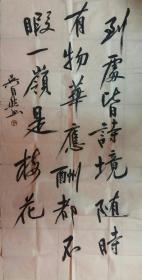 到處皆詩境隨時
有物華應酬都不
暇一嶺是梅花